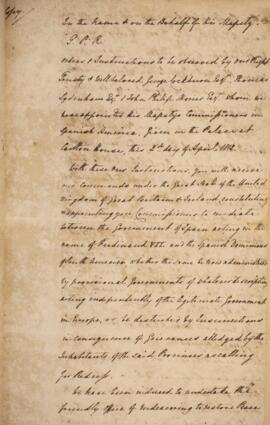 Copy.
In the Name & on the Behalf of his Majesty
P. R.
Orders & Instructions to be observed by our Right
Trusty & Well beloved George Cockburn Esqr. Thomas
Sydenham Esqr. & John Philip Morier Esqr. whom we
have appointed his Majesty's Commissioners in
Spanish America. Given in the Palace at
Carlton House, this 2d day of April 1812.
With these our Instructions You will receive
our Commands under the Great Seal of the United
Kingdom of Great Britain & Ireland, constituting
& appointing you Commissioners to mediate
between the Government of Spain acting in the
name of Ferdinand VII. and the Spanish Dominions
of South America whether the same be now administered
by provisional Governments of whatever description
acting independently of the Legitimate Government
in Europe, or be disturbed by Insurrections
in consequence of Grievances alledged by the
Inhabitants of the said Provinces as calling
for Redress.
We have been induced to undertake this
friendly Office of endeavoring to restore Peace